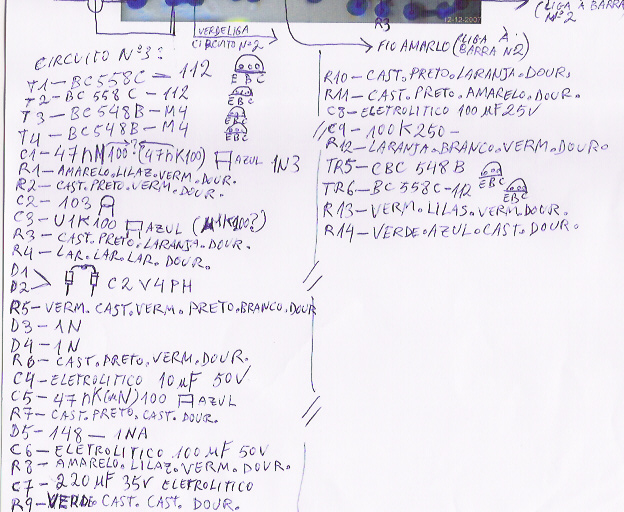 (LIGA À BARRA
Nº2
R3
12-12-2007
VERDE LIGA
CIRCUITO Nº2
FIO AMARLO (LIGA À
BARRA Nº2)
CIRCUITO Nº3:
T1-BC558C-112
EBC
T2-BC 558 C-112
EBC
T3-BC548B-M4
EBC
T4-BC548B-M4
EBC
C1-47nM100? (47nK100) AZUL 1N3
R1-AMARELO.LILAZ.VERM.DOUR.
R2-CAST.PRETO.VERM.DOUR.
C2-103
C3-U1K100 AZUL (µ1K100?)
R3-CAST.PRETO.LARANJA.DOUR.
R4-LAR.LAR.LAR.DOUR.
D1
D2 C2V4PH
R5-VERM.CAST.VERM.PRETO.BRANCO.DOUR
D3-1N
D4-1N
R6-CAST.PRETO.VERM.DOUR.
C4-ELETROLITICO 10µF 50V
C5-47nK(µN)100 AZUL
R7-CAST.PRETO.CAST.DOUR.
D5-148-1NA
C6-ELETROLITICO 100µF 50V
R8-AMARELO.LILAZ.VERM.DOUR.
C7-220µF 35V ELETROLITICO
R9-VERDE CAST.CAST.DOUR.
R10-CAST.PRETO.LARANJA.DOUR.
R11-CAST.PRETO.AMARELO.DOUR.
C8-ELETROLITICO 100µF25V
C9-100K250-
R12-LARANJA.BRANCO.VERM.DOURO
TR5-CBC 548B
EBC
TR6-BC 558C-112
EBC
R13-VERM.LILAS.VERM.DOUR.
R14-VERDE.AZUL.CAST.DOUR.